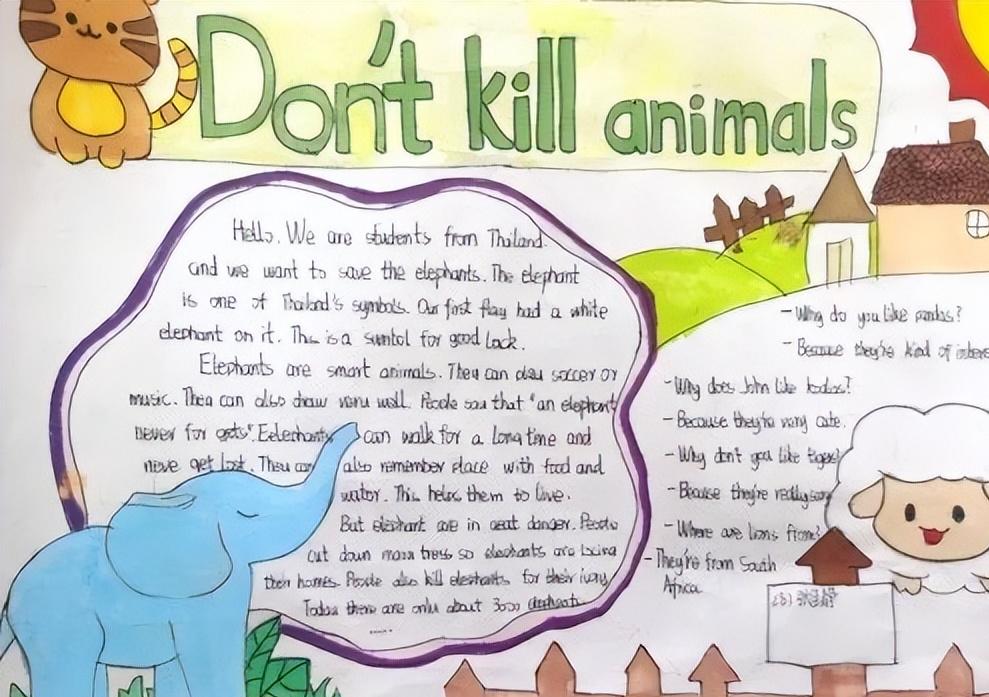 Don't kill animals
Hello. We are students from Thailand.
and we want to save the elephants. The elephant
is one of Thailand's symbols. Our first flag had a white
elephant on it. This is a symtol for good lack.
Elephants are smart animals. They can play soccer or
music. They can also draw very well. People say that "an elephant
never for gets". Eelephants can walk for a long time and
neve get lost. They can also remember place with food and
water. This helps them to live.
But elephant are in great danger. People
cut down many tress so elephants are losing
their homes. People also kill elephants for their ivory
Today there are only about 3000 elephants
- Why do you like pandas?
- Because they're kind of
- Why does John like koalas?
- Because they're very cute.
- Why don't you like tigers?
- Because they're really
- Where are lions from?
- They're from South
Africa.